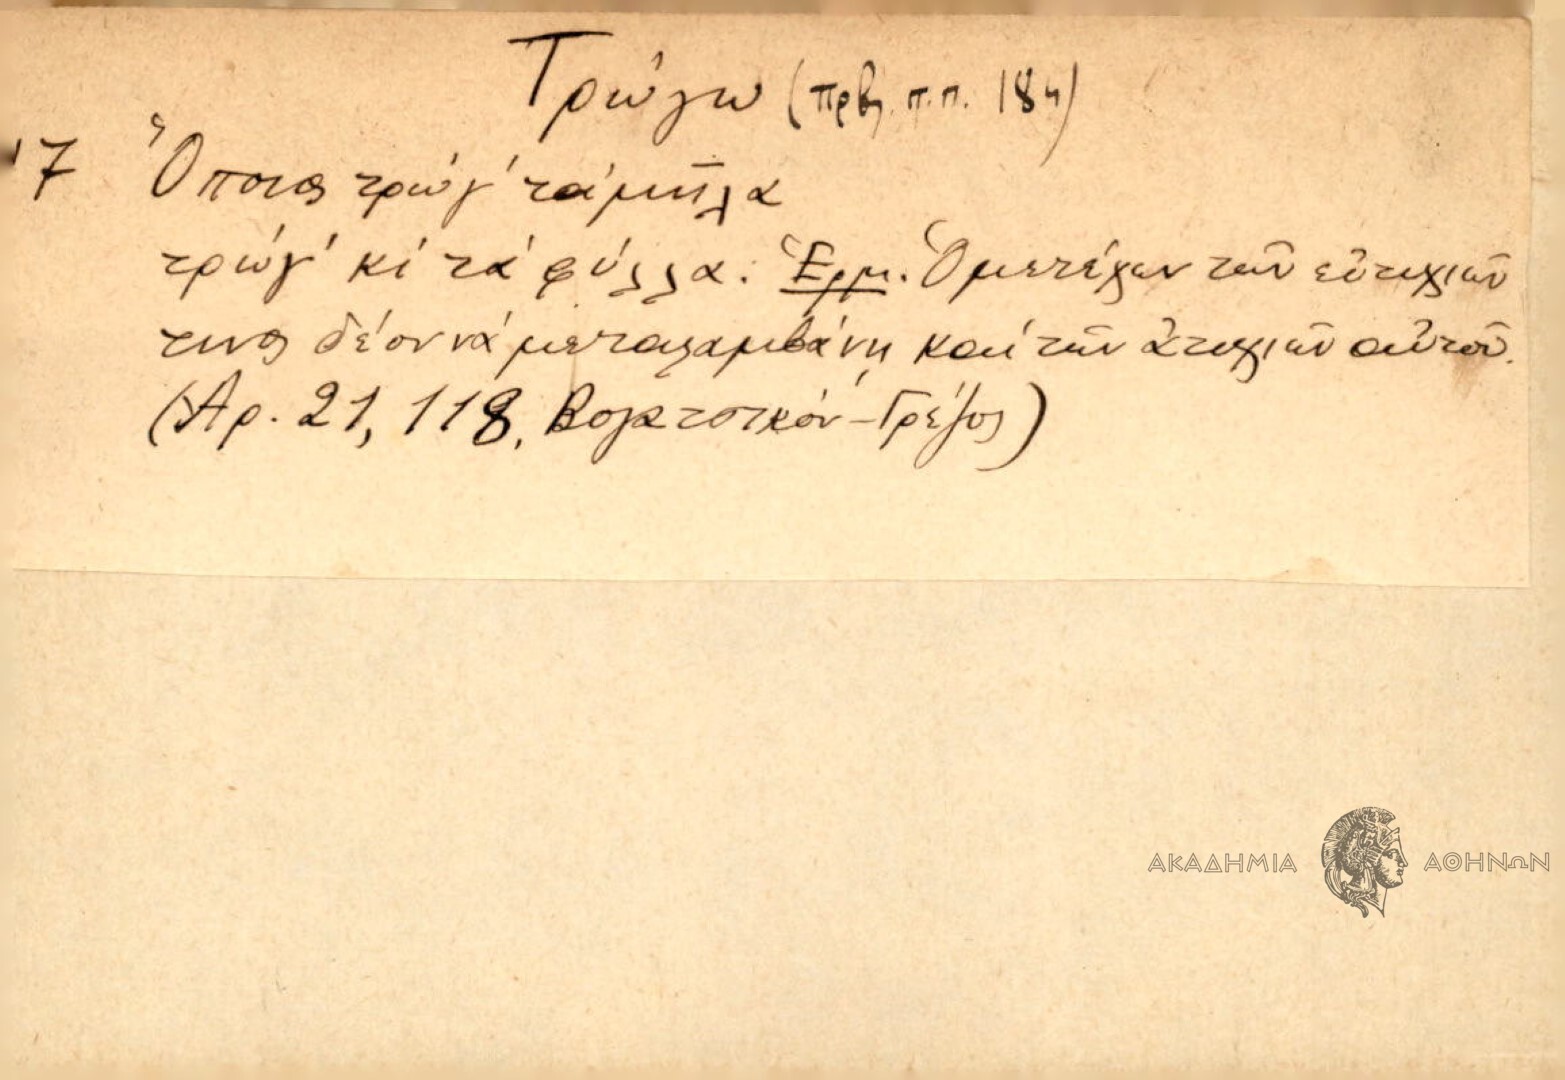 Τρώγω (πρβ. π.π. 184)
17 Ὅποιος τρώγ' τὰ μῆλα
τρώγ' κὶ τὰ φύλλα. Ἑρμ. Ὁ μετέχων τῶν εὐτυχιῶν
τινος δέον νὰ μεταλαμβάνη καὶ τῶν ἀτυχιῶν αὐτοῦ.
(Ἀρ. 21, 118, Βογατσικόν - Γρέζος)
ΑΚΑΔΗΜΙΑ ΑΘΗΝΩΝ